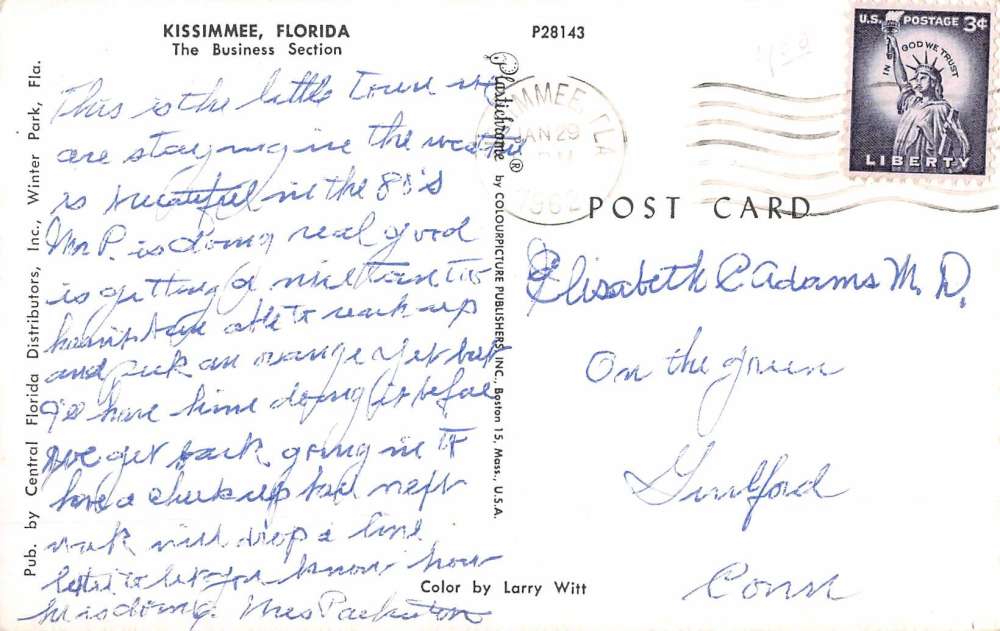 KISSIMMEE, FLORIDA
The Business Section
P28143
This is the little town we
are staying in the weather
is beautiful in the 80's
Mr P. is doing real good
is getting a nice tan too
hasn't been able to reach up
and pick an orange yet but
I'll have him doing it before
we get back going in to
have a check up here next
week will drop a line
later to let you know how
he is doing. Mrs
Pub. by Central Florida Distributors, Inc., Winter Park, Fla.
Plastichrome® by COLOURPICTURE PUBLISHERS, INC., Boston 15, Mass., U.S.A.
Color by Larry Witt
KISSIMMEE, FLA
JAN 29
PM
1962
U.S. POSTAGE 3¢
IN GOD WE TRUST
LIBERTY
POST CARD
Elisabeth C Adams M.D.
On the green
Guilford
Conn